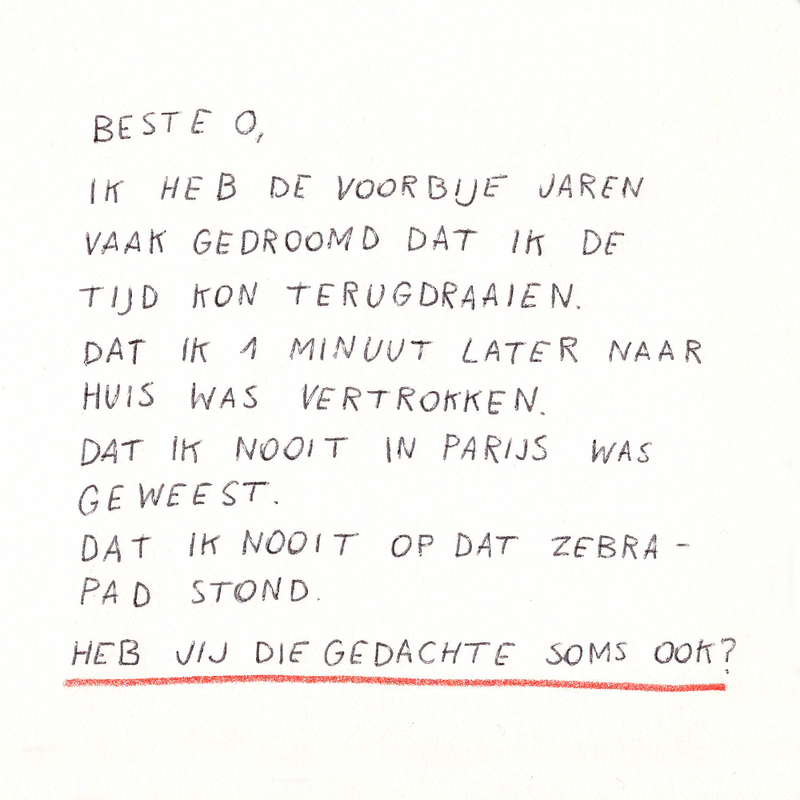 BESTE O,
IK HEB DE VOORBIJE JAREN
VAAK GEDROOMD DAT IK DE
TIJD KON TERUGDRAAIEN.
DAT IK 1 MINUUT LATER NAAR
HUIS WAS VERTROKKEN.
DAT IK NOOIT IN PARIJS WAS
GEWEEST.
DAT IK NOOIT OP DAT ZEBRA-
PAD STOND.
HEB JIJ DIE GEDACHTE SOMS OOK?